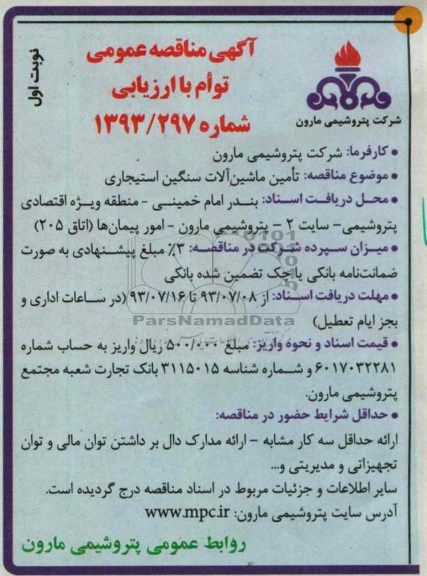 نوبت اول
آگهی مناقصه عمومی
توأم با ارزیابی
شماره ۱۳۹۳/۲۹۷
شرکت پتروشیمی مارون
• کارفرما: شرکت پتروشیمی مارون
• موضوع مناقصه: تأمین ماشین‌آلات سنگین استیجاری
• محل دریافت اسناد: بندر امام خمینی - منطقه ویژه اقتصادی
پتروشیمی- سایت ۲ - پتروشیمی مارون - امور پیمان‌ها (اتاق ۲۰۵)
• میزان سپرده شرکت در مناقصه: ۳٪ مبلغ پیشنهادی به صورت
ضمانت‌نامه بانکی یا چک تضمین شده بانکی
• مهلت دریافت اسناد: از ۹۳/۰۷/۰۸ تا ۹۳/۰۷/۱۶ (در ساعات اداری و
بجز ایام تعطیل)
ParsNamadData
• قیمت اسناد و نحوه واریز: مبلغ ۵۰۰/۰۰۰ ریال واریز به حساب شماره
۶۰۱۷۰۳۲۲۸۱ و شماره شناسه ۳۱۱۵۰۱۵ بانک تجارت شعبه مجتمع
پتروشیمی مارون.
• حداقل شرایط حضور در مناقصه:
ارائه حداقل سه کار مشابه - ارائه مدارک دال بر داشتن توان مالی و توان
تجهیزاتی و مدیریتی و...
سایر اطلاعات و جزئیات مربوط در اسناد مناقصه درج گردیده است.
آدرس سایت پتروشیمی مارون: www.mpc.ir
روابط عمومی پتروشیمی مارون